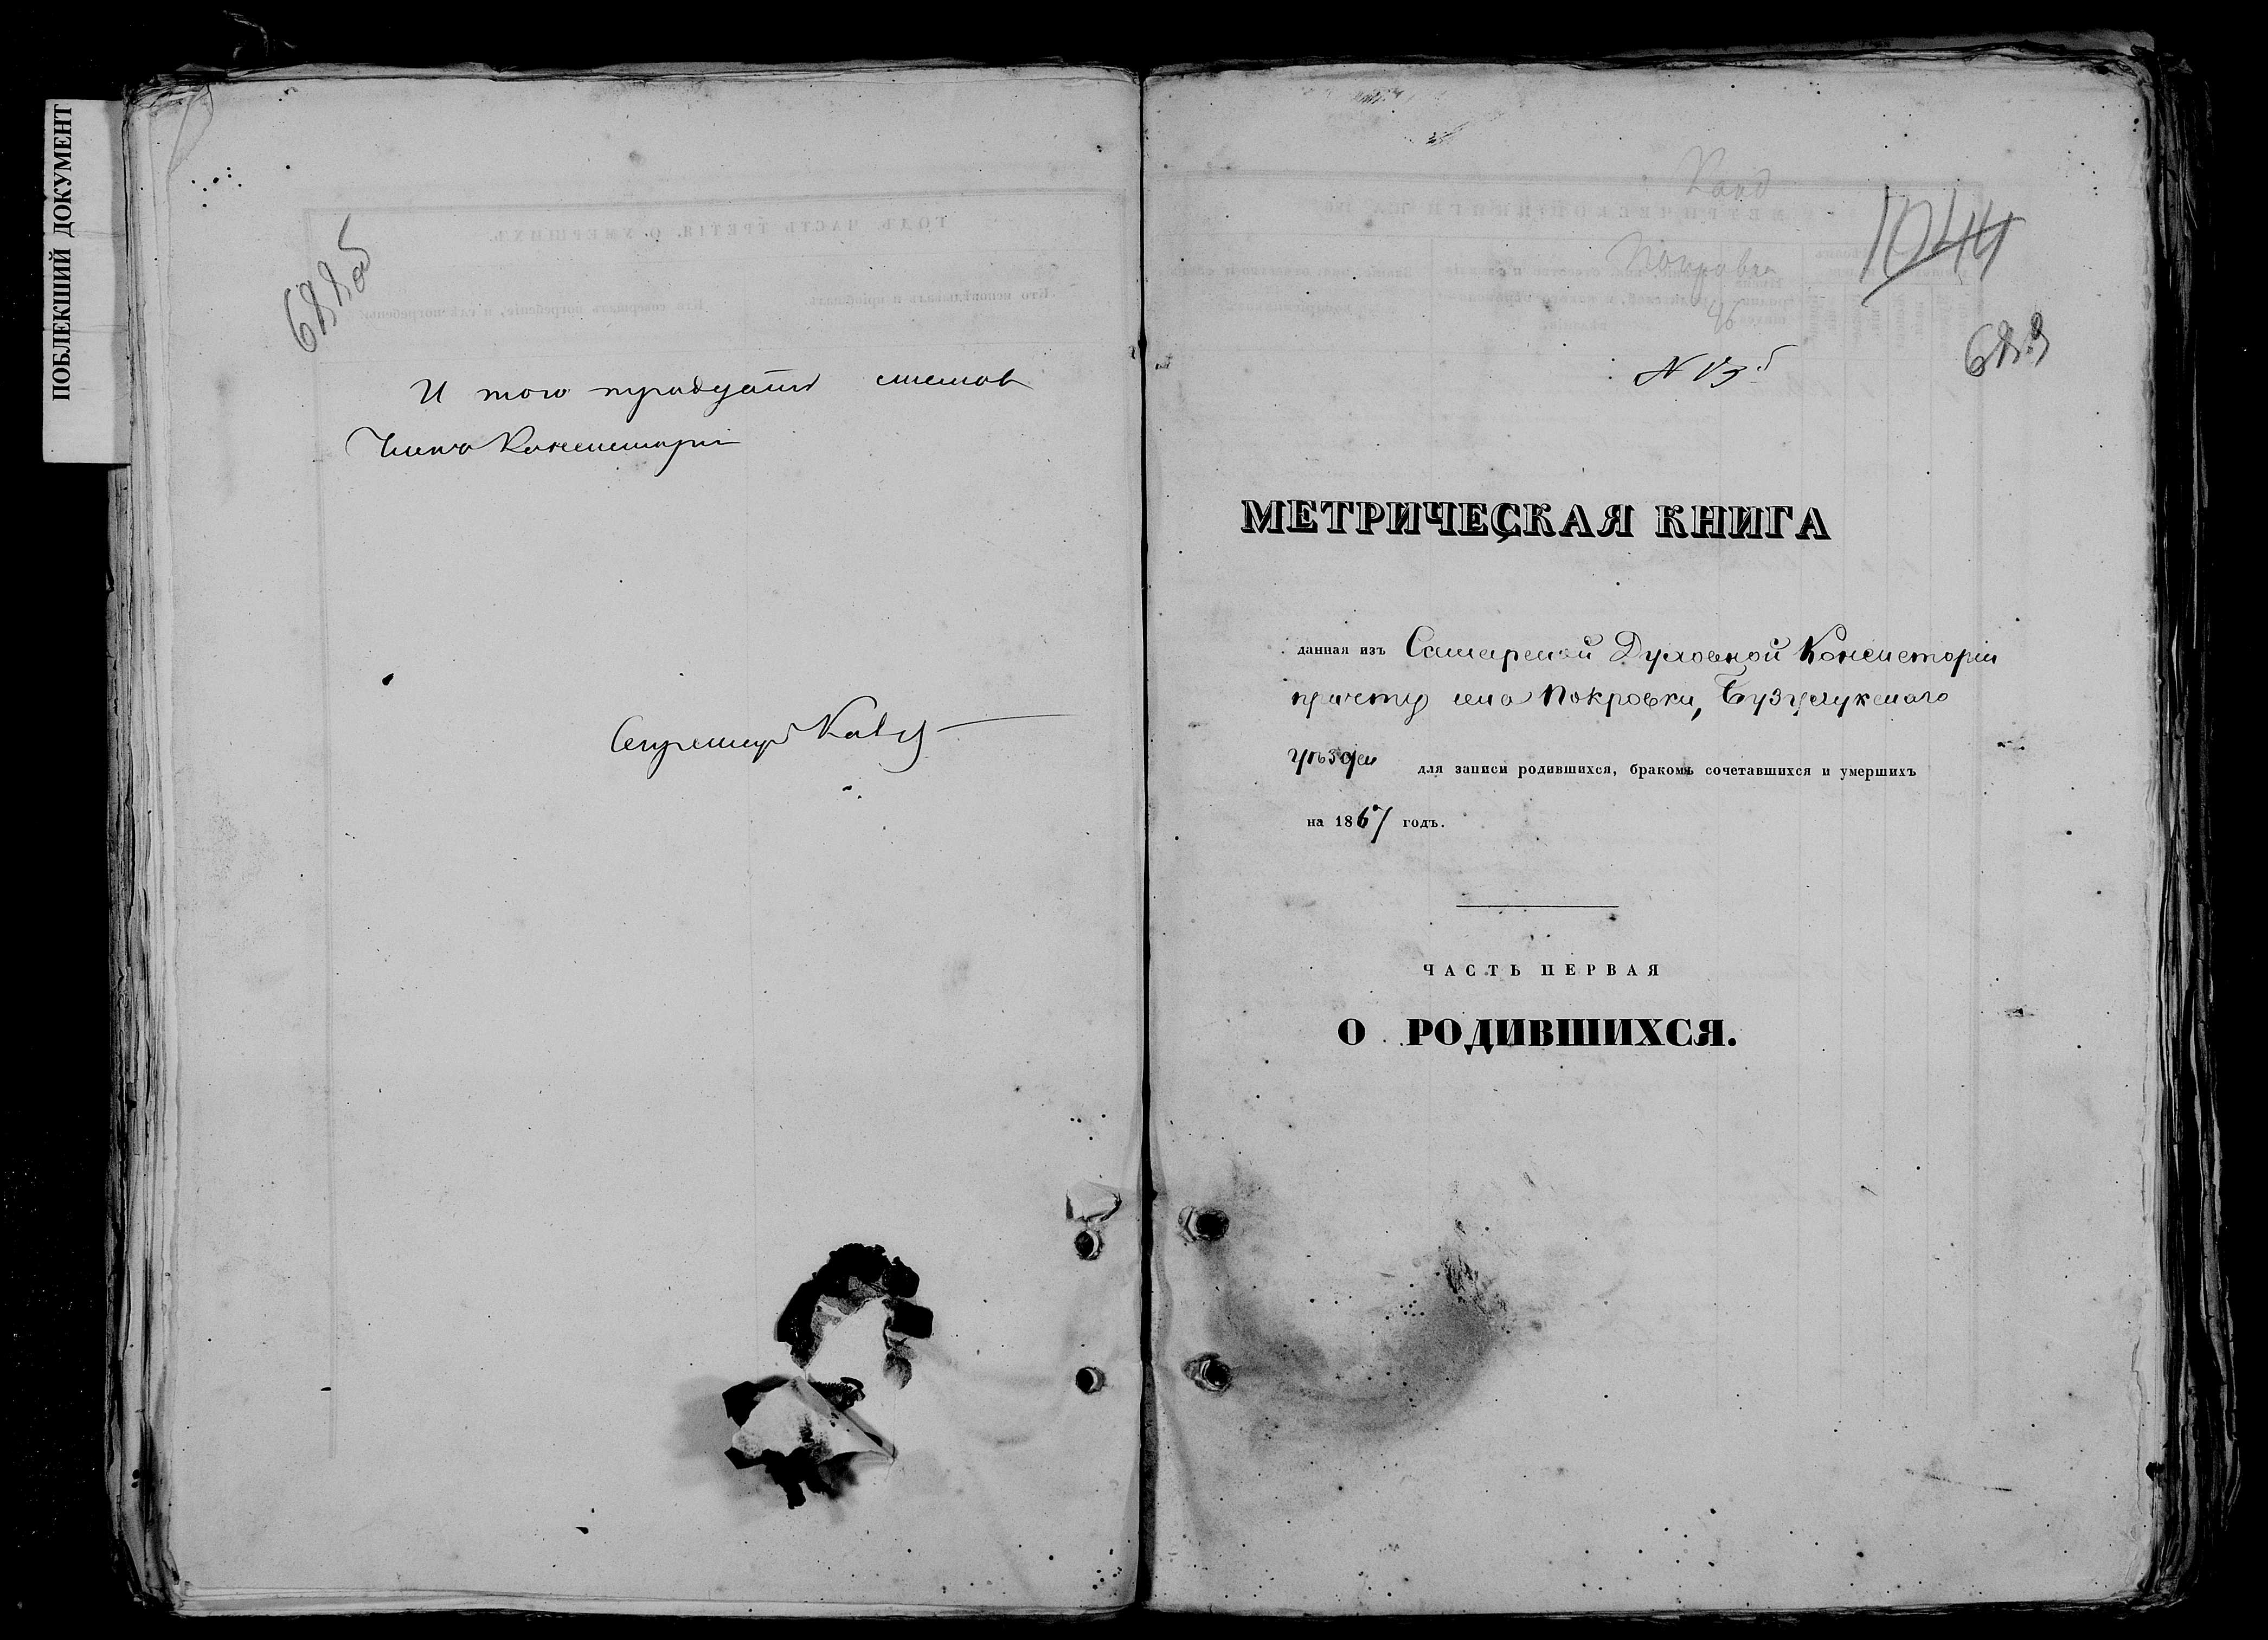 ПОБЛЕКШИЙ ДОКУМЕНТ
688об
И того тридцать листов
Членъ Консисторіи
Секретарь
Покровка
46
1044
689
МЕТРИЧЕСКАЯ КНИГА
данная изъ Самарской Духовной Консисторіи
причту села Покровки, Бузулукскаго
уѣзда для записи родившихся, бракомъ сочетавшихся и умершихъ
на 1867 годъ.
ЧАСТЬ ПЕРВАЯ
О РОДИВШИХСЯ.